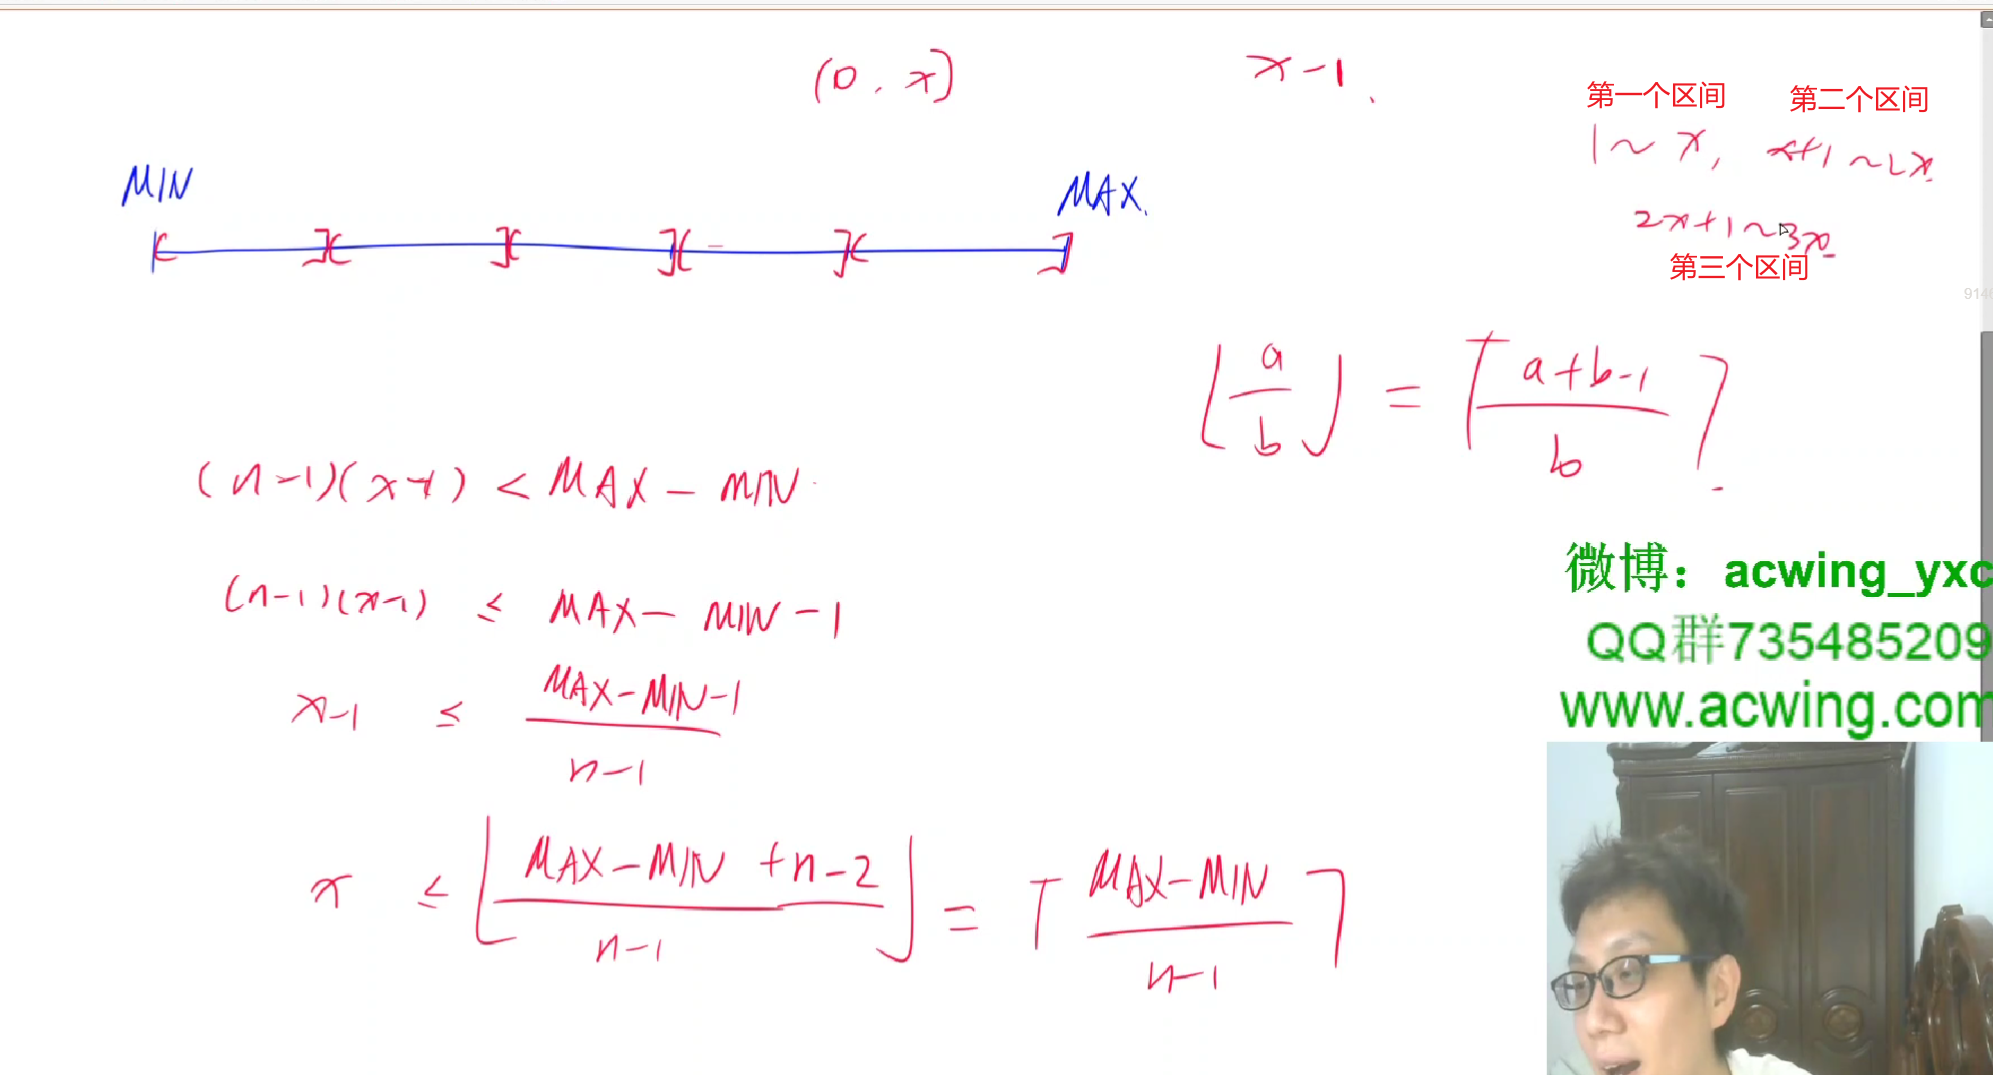 (0, x]
x-1.
第一个区间 第二个区间
1~x, x+1~2x.
2x+1~3x
第三个区间
MIN
MAX.
914
⌊a/b⌋ = ⌈(a+b-1)/b⌉.
(n-1)(x-1) < MAX - MIN
(n-1)(x-1) ≤ MAX - MIN - 1
x-1 ≤ (MAX-MIN-1)/(n-1)
x ≤ ⌊(MAX-MIN+n-2)/(n-1)⌋ = ⌈(MAX-MIN)/(n-1)⌉
微博：acwing_yxc
QQ群735485209
www.acwing.com